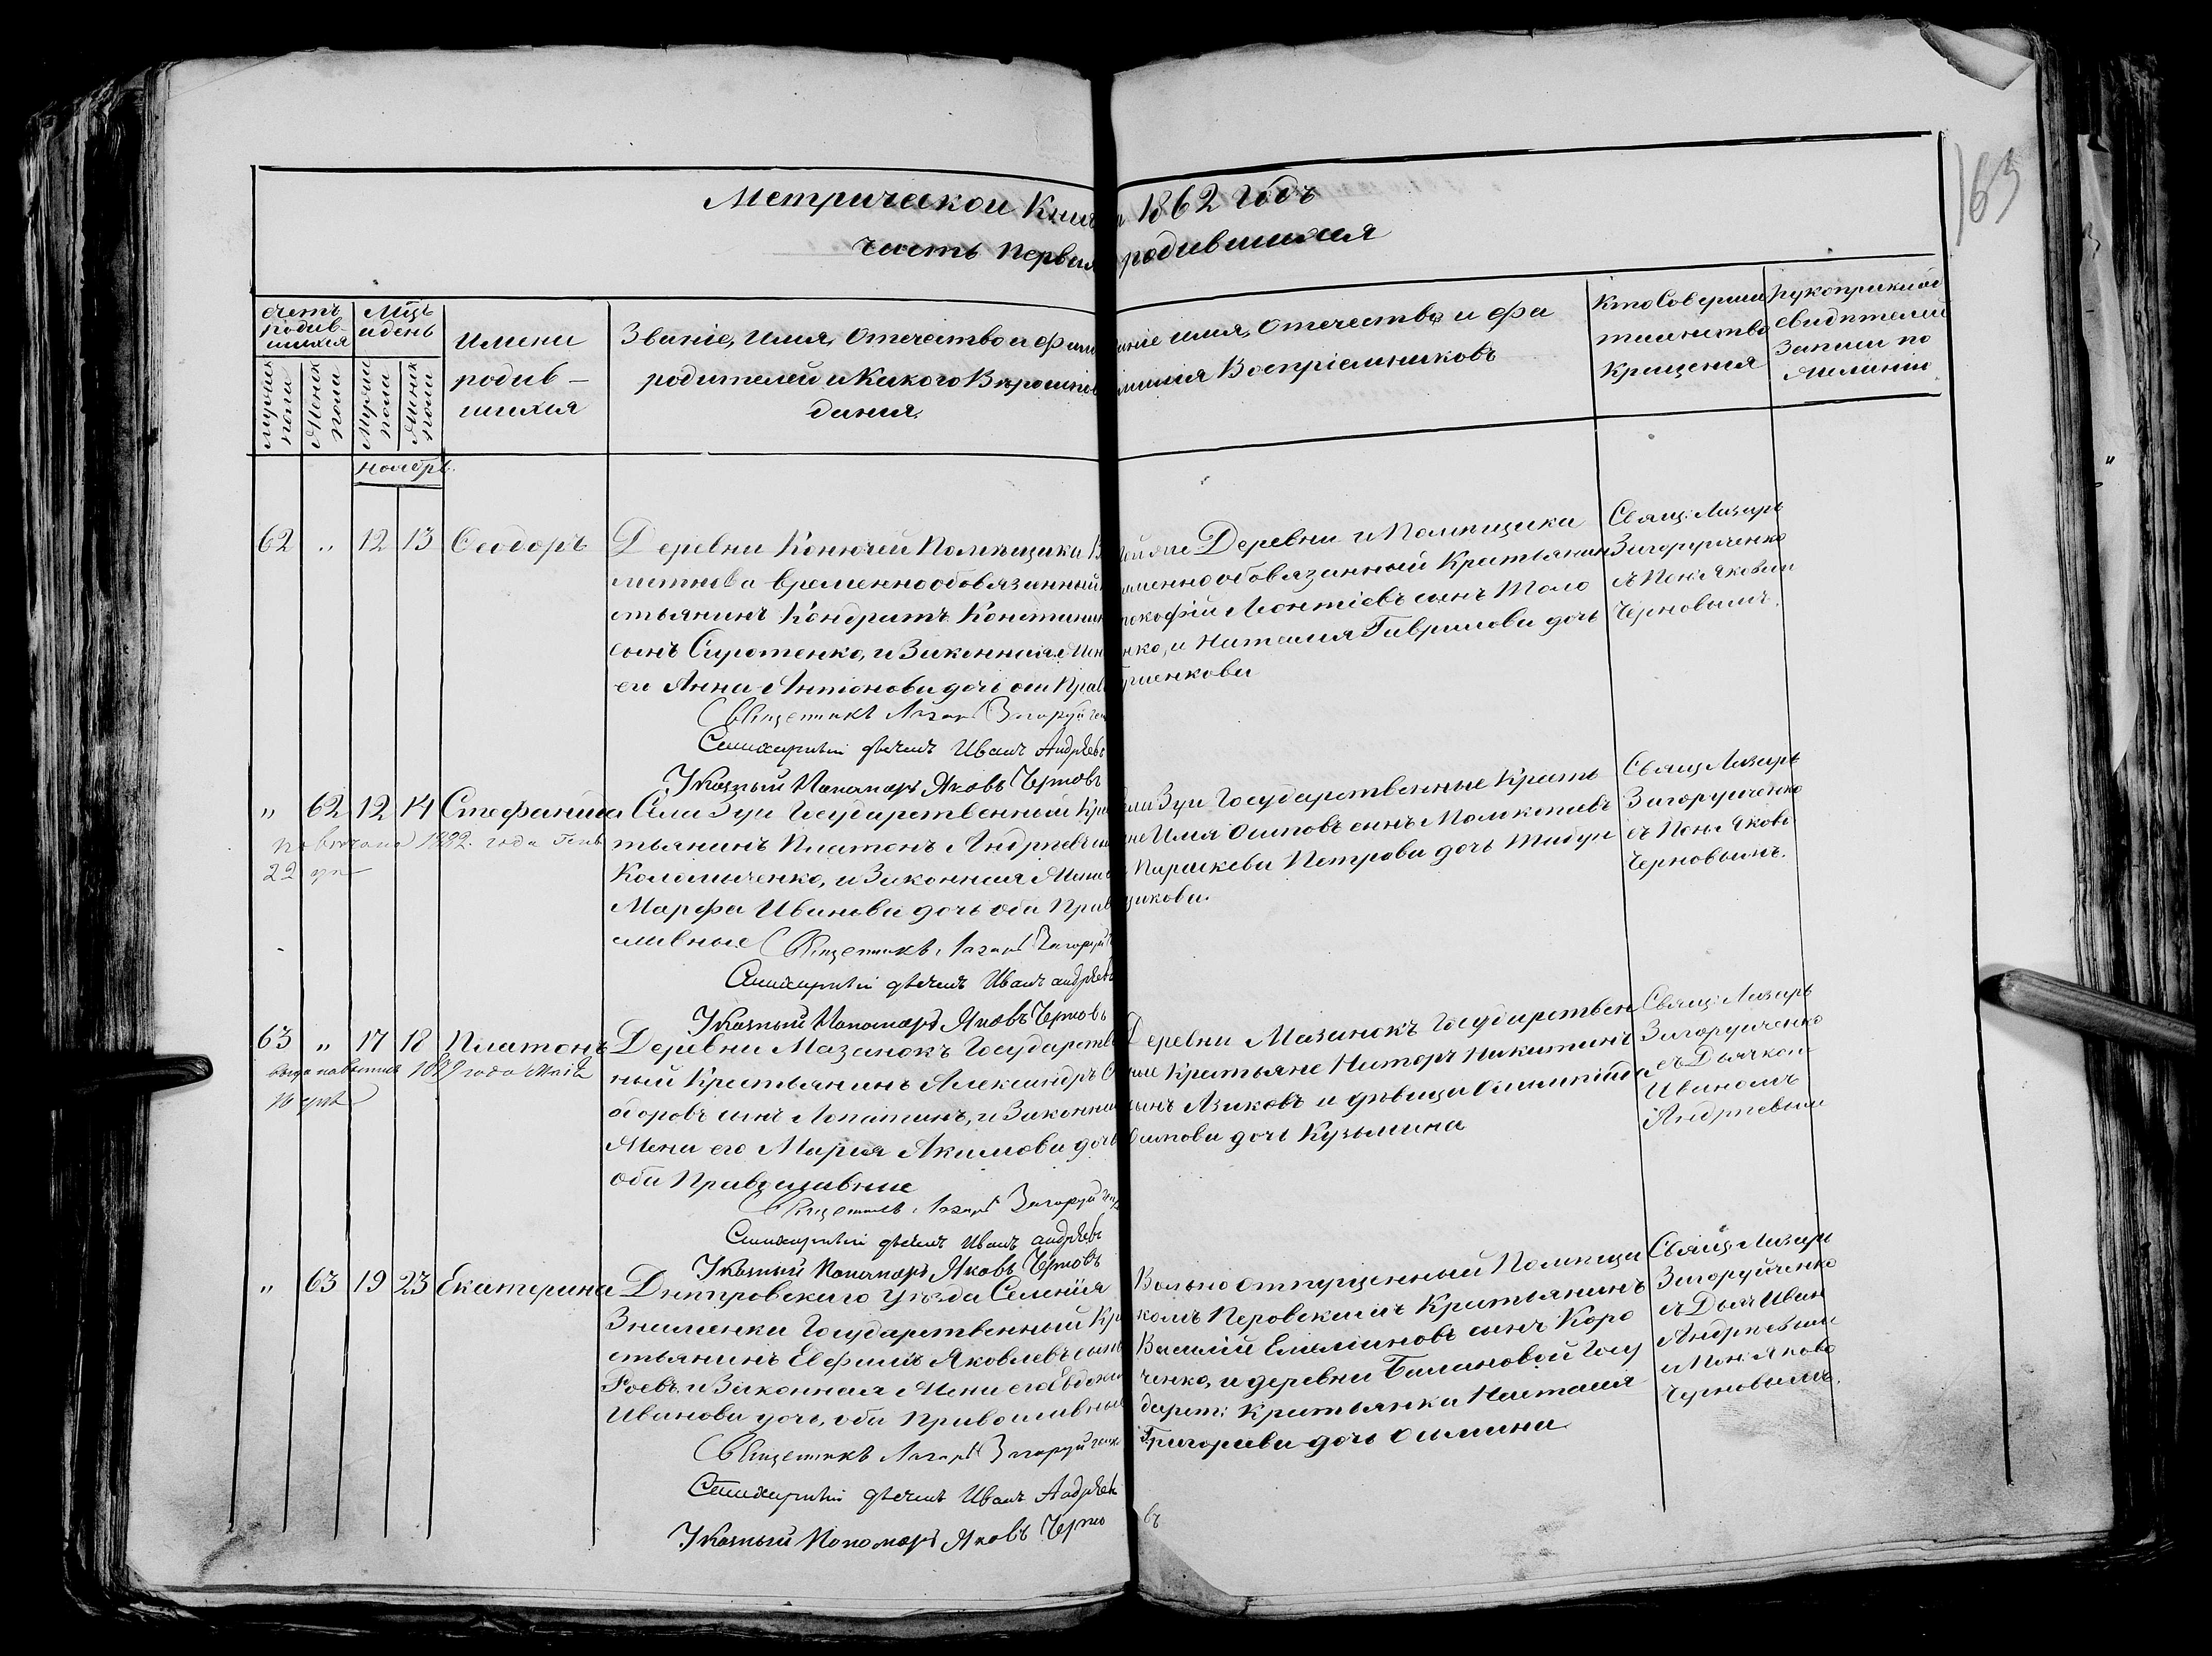 Метрической Книги 1862 Годъ
Часть Первая родившихся
163
счетъ родив-шихся
Мцъ и день
Имена родив-шихся
Званіе, Имя, Отечество и фами
родителей и Какого Вѣроиспов
данія.
имя, Отечество и фа
милия Воспріемниковъ
Кто Соверши
таинство
Крещения
рукоприклад
свидѣтелей
Записи по
Мужеск пола
Женск пола
Мужеск пола
Женск пола
ноябрь.
62 " 12 13 Ѳеодоръ
Деревни Конючей Помѣщика
временнообовязанный
стьянинъ Кондратъ Констанин
сынъ Сиротенко, и Законная Жен
его Анна Антонова дочь оти Прав
Священникъ Лазарь Загоруйчен
Стихарный дьячекъ Иванъ Андрѣевъ
Указный Пономарь Яковъ Черновъ
той же Деревни и Помѣщика
менно обовязанный Крестьянин
рокофій Леонтіевъ сынъ Толо
нко, и Наталия Гаврилова дочь
Свящ: Лазарь
Загоруйченко
съ Пон: Яковом
Черновымъ.
" 62 12 14 Стефанида
Повѣнчана 1882. года Генв
22 дня
Села Зуи Государственный Кре
тьянинъ Платонъ Андреевъ сы
Коломыченко, и Законная Жена
Марфа Иванова дочь оба Прав
славные Священникъ Лазарь Загоруй
Стихарный дьячекъ Иванъ андрѣевъ
Указный Пономарь Яковъ Черновъ
ела Зуи Государственные Кресть
не Илия Осиповъ сынъ
Параскева Петрова дочь Табун
щикова.
Свящ Лазарь
Загоруйченко
съ Пон: Яково
Черновымъ.
63 " 17 18 Платонъ
10 дня
Деревни Мазанокъ Государств
ный Крестьянинъ Александръ Ѳ
одоровъ сынъ Лопатинъ, и Законна
Жена его Мария Акимова дочь
оба Православные
Священникъ Лазарь Загоруйчен
Стихарный дьячекъ Иванъ андрѣевъ
Указный Пономарь Яковъ Черновъ
Деревни Мазанокъ Государствен
ные Крестьяне Никитинъ
сынъ Азиковъ и дѣвица
Осипова дочь Кузьмина
Свящ: Лазарь
Загоруйченко
съ Дьячком
Иваномъ
Андреевым
" 63 19 23 Екатерина
Днепровскаго Уѣзда Селенїя
Знаменки Государственный Кре
стьянинъ Евфимъ Яковлевъ сынъ
Роевъ, и Законная Жена его Евдокия
Иванова дочь, оба Православные
Священникъ Лазарь Загоруйченко
Стихарный дьячекъ Иванъ Андрѣев
Указный Пономарь Яковъ Черно въ
Вольно отпущенный Помѣщи
комъ Перовскимъ Крестьянинъ
Василій Емелиановъ сынъ Коро
ченко, и деревни Балановой Госу
дарст: Крестьянка Наталия
Григорьева дочь
Свящ: Лазарь
Загоруйченко
съ Дьяч Иван
Андреевым
и Пон: Яково
Черновымъ.